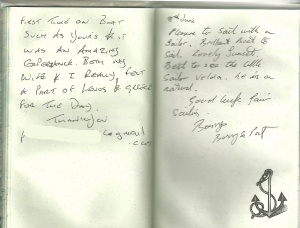 FIRST TIME ON BOAT
SUCH AS YOURS & IT
WAS AN AMAZING
EXPERIENCE. BOTH MY
WIFE & I REALLY FELT
A PART OF
FOR THE DAY.
THANKYOU
@gmail
.com
8th June
Pleasure to sail with a
Sailor. Brilliant boat to
Sail. Lovely Sunset.
Best to see the little
Sailor he is a
natural.
Good luck fair
Sailor
& Pat